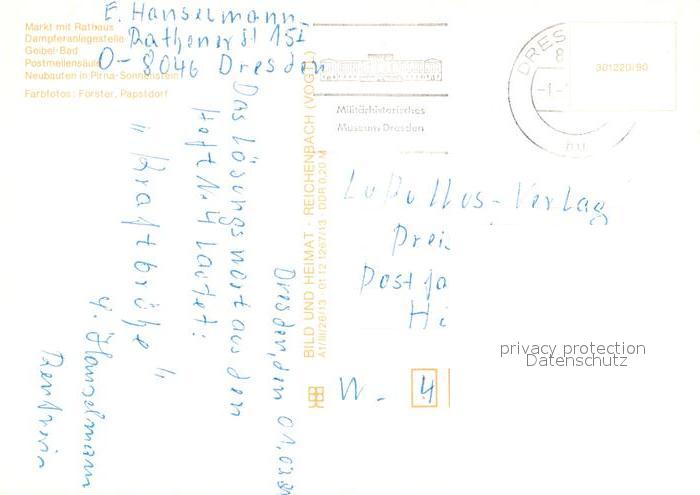 E. Hanselmann
Rathener St 151
O-8046 Dresden
Markt mit Rathaus
Dampferanlegestelle
Geibel-Bad
Postmeilensäule
Neubauten in Pirna-Sonnenstein
Farbfotos: Forster, Papstdorf
Dresden, den 01.03.91
Das Lösungswort aus den
Heft Nr. 4 lautet:
" Kraftbrühe "
Hanselmann
Rentnerin
BILD UND HEIMAT · REICHENBACH (VOGTL)
A1/III/26/13 · 01 12 1267/13 · DDR 0,20 M
Militärhistorisches
Museum Dresden
DRES
8
-1.-
301220/90
LuPullus-Verlag
Prei
Postfa
Hi
W - 4
privacy protection
Datenschutz